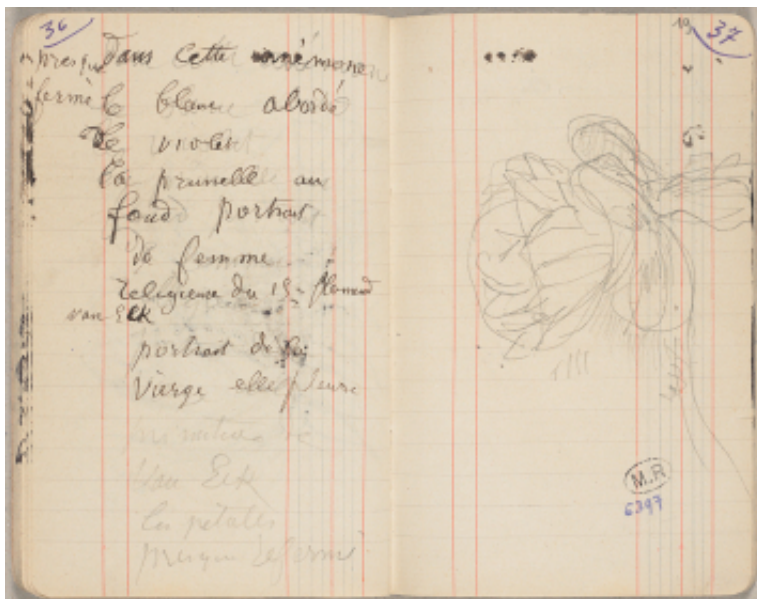 36
presque dans cette anémone
fermé le blanc abordé
le violet
la prunelle au
fond portrait
de femme
religieuse du 15e flamand
van Eck
portrait de
vierge elle pleure
primitive
Van Eck
les pétales
presque refermé
19 37
M.R
6397